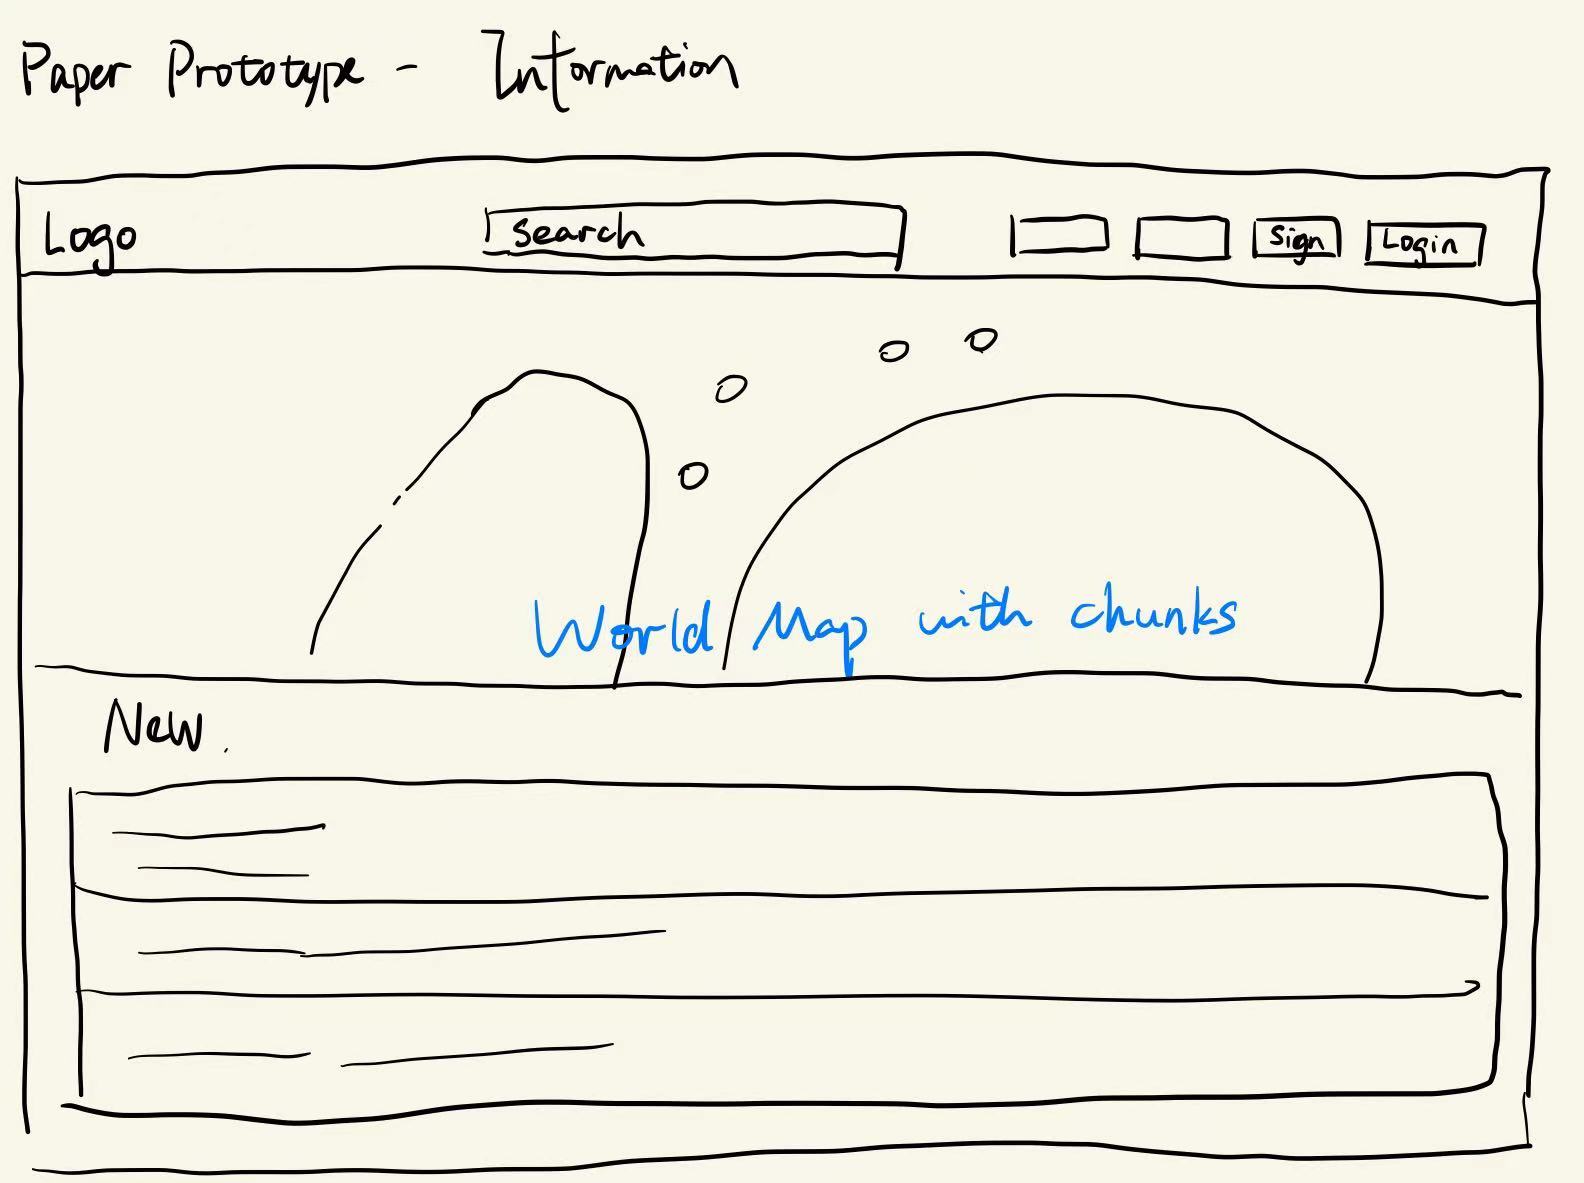 Paper Prototype - Information
Logo
search
Sign
Login
World Map with chunks
New.